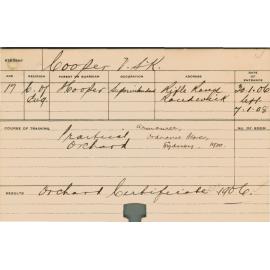 STUDENT
Cooper T.S.K.
AGE RELIGION PARENT OR GUARDIAN OCCUPATION ADDRESS DATE OF ENTRANCE
17 C. of Cooper Superintendent Rifle Range 30.1.06
Eng. Randwick left
7.1.08
COURSE OF TRAINING NO. OF BOOK
Practical Armourer,
Orchard Ordnance Stores,
Sydney
RESULTS Orchard Certificate 1906.